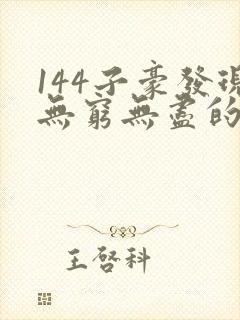 144子豪發現
無窮無盡的
王啓科